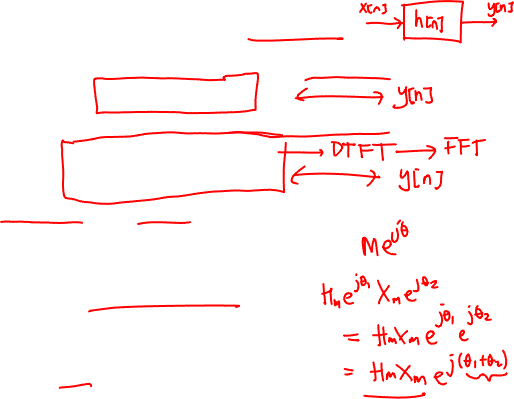 x[n] h[n] y[n]
y[n]
DTFT → FFT
y[n]
Me^{jθ}
H_m e^{jθ_1} X_m e^{jθ_2}
= H_m X_m e^{jθ_1} e^{jθ_2}
= H_m X_m e^{j(θ_1+θ_2)}